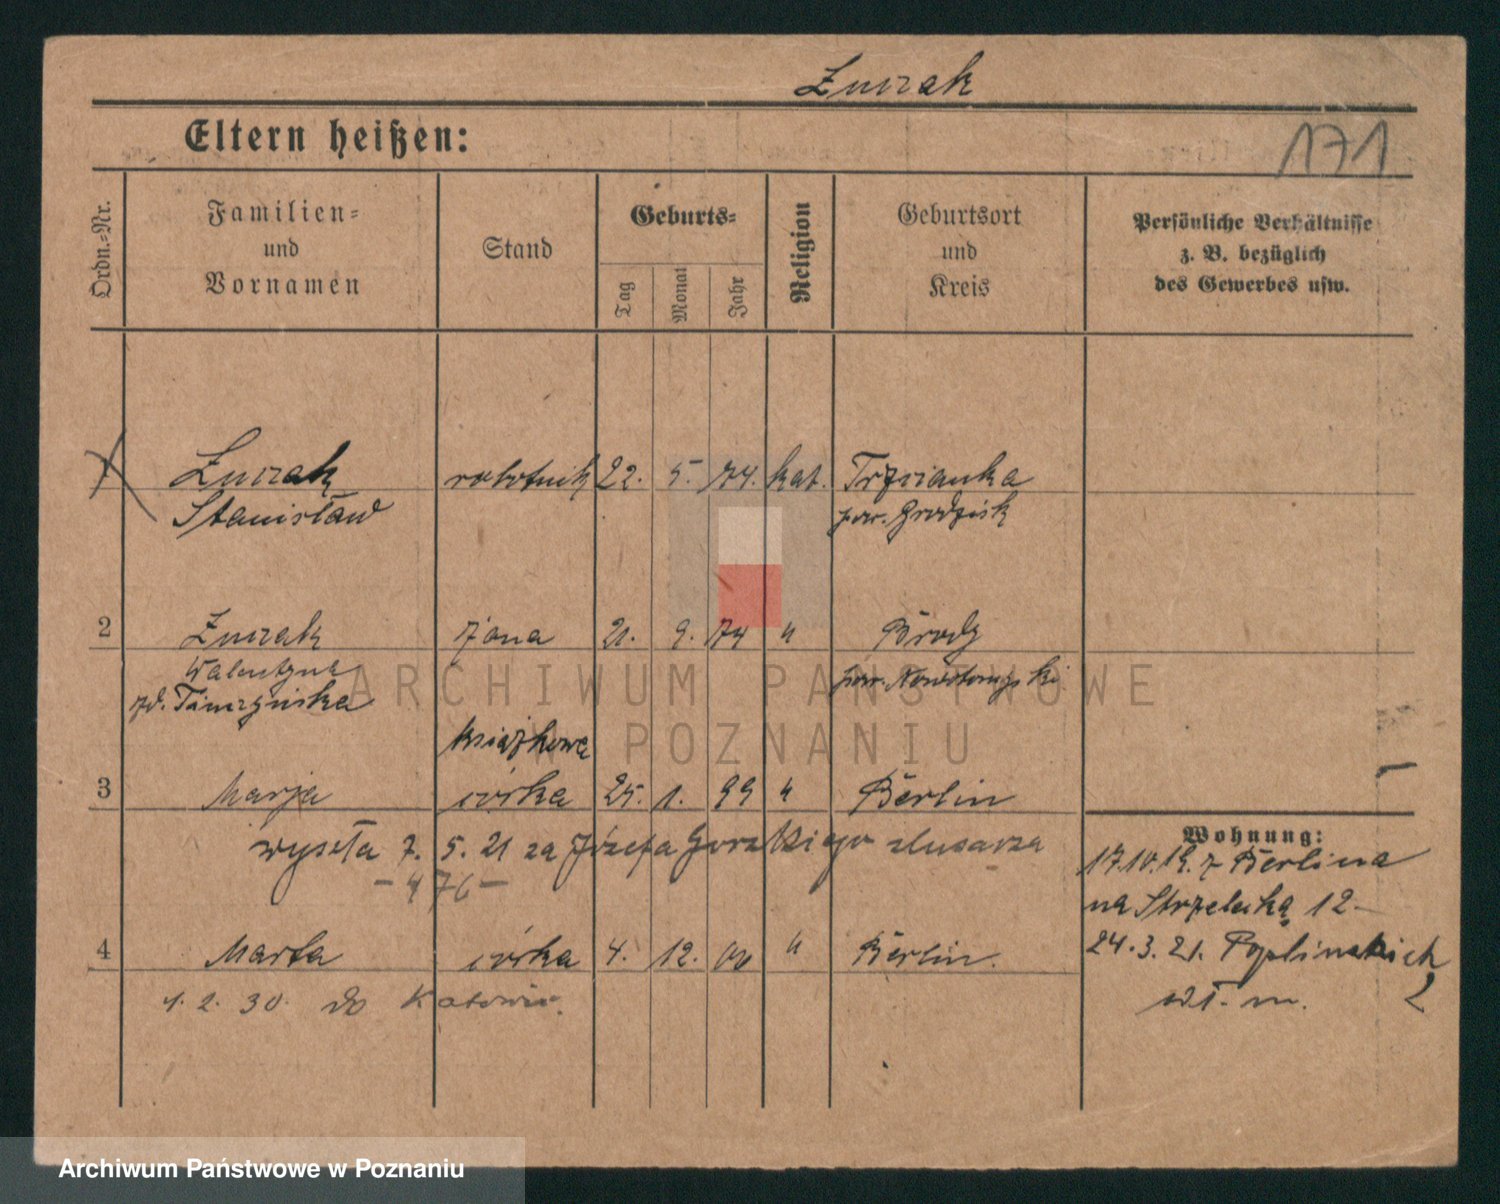 Żurzak
Eltern heißen:
171
Ordn.-Nr.
Familien-
und
Vornamen
Stand
Geburts-
Tag
Monat
Jahr
Religion
Geburtsort
und
Kreis
Persönliche Verhältnisse
z. B. bezüglich
des Gewerbes usw.
1 Żurzak robotnik 22. 5. 74. kat. Trzcianka
Stanisław pow. Grodzisk
2 Żurzak żona 21. 9. 74 " Brody
Walentyna pow. Nowotomyski
zd.
książkowa
3 Marja córka 25. 1. 99 " Berlin
wyszła 7. 5. 21 za Józefa Gorzkiego slusarza
- 476 -
4 Marta córka 4. 12. 00 " Berlin.
1. 2. 30. do Katowic.
Wohnung:
17.10.19. z Berlina
na Strzelecką 12
24.3.21. Poplińskich 2
wł. m.
ARCHIWUM PAŃSTWOWE
W POZNANIU
Archiwum Państwowe w Poznaniu